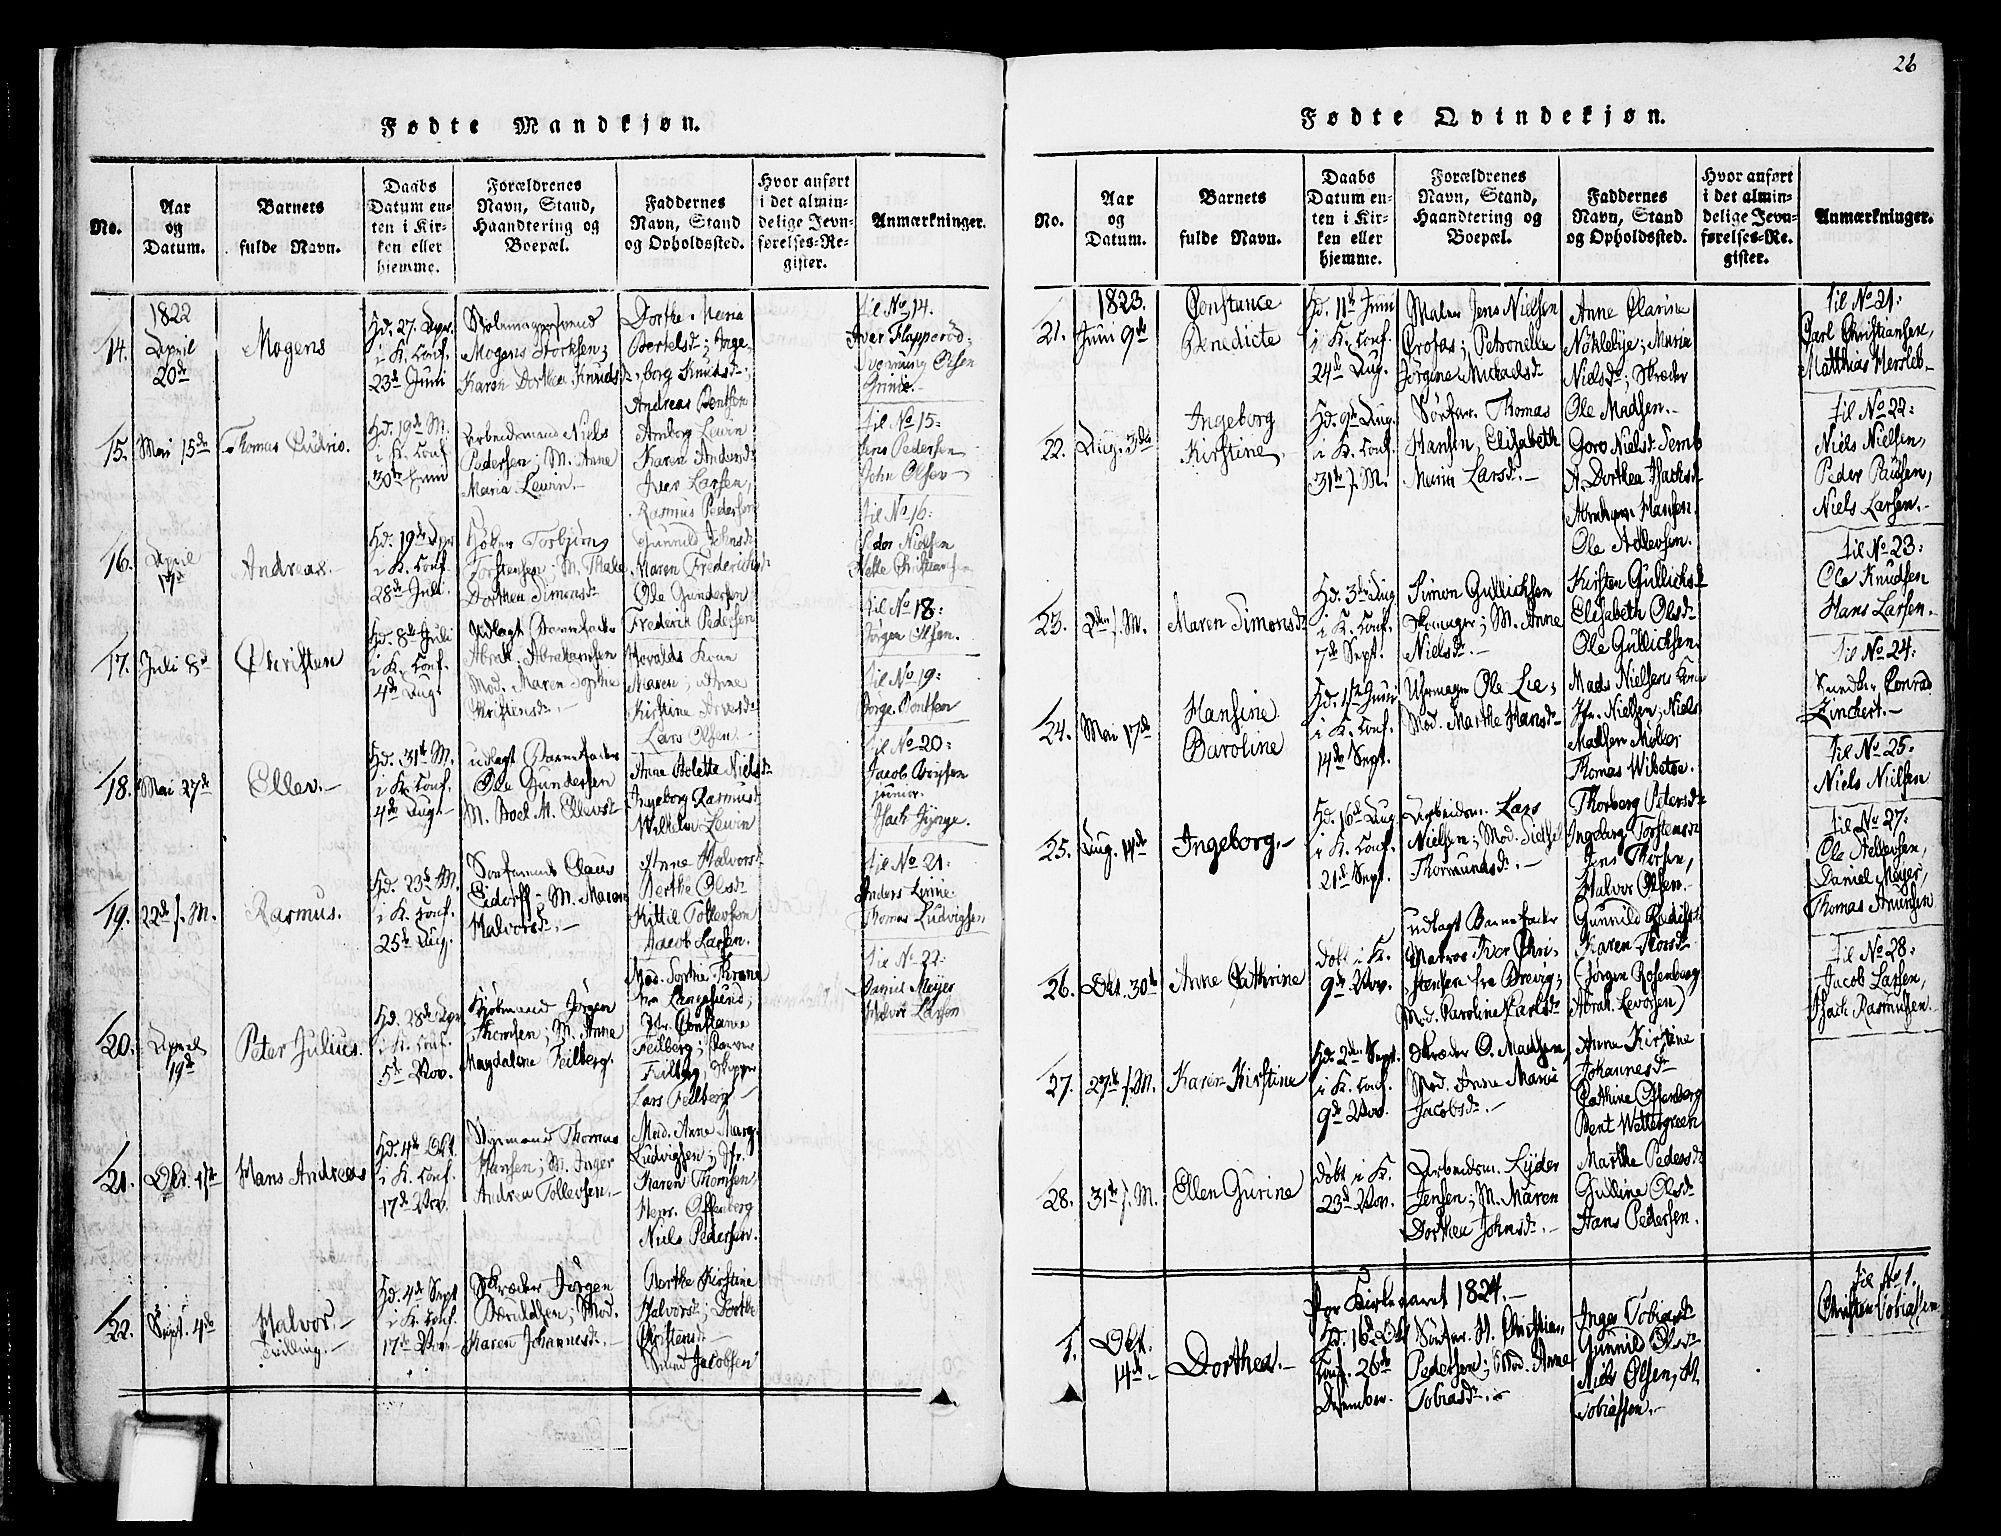 Fødte Mandkjøn.
No.
Aar og Datum.
Barnets fulde Navn.
Daabs Datum enten i Kirken eller hjemme.
Forældrenes Navn, Stand, Haandtering og Boepæl.
Faddernes Navn, Stand og Opholdssted.
Hvor anført i det almindelige Jevnførelses-Register.
Anmærkninger.
1822
14.
April 20de
Mogens
Hd. 27. Apr. i K. Conf. 23d Juni
Mogens Storksen;
Karen Dorthea Knudsd.
Dorthe Maria
Bertelsd; Inge-
borg Knudsd.
Andreas Bentsen
til No 14.
Iver Flapperød
Olsen
15.
Mai 15de
Thomas
Hd. 19de M. i K. Conf. 30te Juni
Arbeidsmand Niels
Pedersen; M. Anne
Maria Levin.
Amborg Levin
Karen
Iver Larsen,
Rasmus Pedersen
til No 15.
Jens Pedersen
John Olsen
16.
April 17de
Andreas.
Hd. 19de Apr. i K. Conf. 28de Juli.
Høker Torbjørn
Torstensen; M. Thale
Dorthea Simonsdr
Gunnild Johnsd.
Maren Frederichsd.
Ole Gundersen
Frederik Pedersen
til No 16.
Peder Nielsen
Christiansen
17.
Juli 8de
Christen
Hd. 8de Juli i K. Conf. 4de Aug.
Udlagt Barnefader
Abrah. Abrahamsen
Mod. Maren Sophie
Christensd.
Horvalds Kone
Maren; Anne
Kirstine
Lars Olsen.
18.
Mai 27de
Ellev.
Hd. 31te M. i K. Conf. 4de Aug.
udlagt Barnefader
Ole Gundersen
M. Boel M. Ellevsd.
Anne Aolette Nielsd.
Ingeborg Rasmusd.
Wilhelm Levin
til No 18:
Jørgen Olsen.
19.
22de s. M.
Rasmus.
Hd. 23de M. i K. Conf. 25de Aug.
Claus
Eidorff; M. Maren
Halvorsd.
Anne Halvorsd.
Berthe Olsd.
Kittil Tollevsen
Jacob Larsen.
til No 19:
Børge Bentsen
20.
April 19de
Peter Julius.
Hd. 28de Apr. i K. Conf. 5te Nov.
Kjøbmand Jørgen
Thomsen; M. Anne
Magdalene Feilberg.
Mad. Dorthe Krane
fra Langesund;
Jfr. Constance
Feilberg;
Feilberg, Skipper
Lars Feilberg.
til No 20:
Jacob Boysen
junior.
Isach Gjynge.
21.
Okt. 1ste
Hans Andreas
Hd. 4de Okt. i K. Conf. 17de Nov.
Styrmand Thomas
Hansen; M. Inger
Andrea Tollevsen.
Mad. Anne Marg.
Ludvigsen; Jfr.
Karen Thomsen,
Henr. Offenberg
Niels Pedersen.
til No 21:
Anders Linne.
Thomas Ludvigsen
22.
Sept. 4de
Halvor.
Tvilling.
Hd. 4de Sept i K. Conf. 17de Nov.
Skræder Jørgen
Mod.
Karen Johannesd.
Berthe Kirstine
Halvorsd; Dorthe
Thorstensd.
Jacobsen
til No 22:
Daniel Meyer
Halvor Larsen
26
Fødte Qvindekjøn.
No.
Aar og Datum.
Barnets fulde Navn.
Daabs Datum enten i Kirken eller hjemme.
Forældrenes Navn, Stand, Haandtering og Boepæl.
Faddernes Navn, Stand og Opholdssted.
Hvor anført i det almindelige Jevnførelses-Re.gister.
Anmærkninger.
1823.
21.
Juni 9de
Constance
Benedicte
Hd. 11te Juni i K. Conf. 24de Aug.
Maler Jens Nielsen
Crosas; Petronelle
Jorgine Michaelsd.
Anne Clarine
Nøkleby; Maria
Nielsd; Skræder
Ole Madsen.
til No 21:
Carl Christiansen,
Matthias Herslеb.
22.
Aug. 3de
Ingeborg
Kirstine
Hd. 9de Aug. i K. Conf. 31te s. M.
Thomas
Hansen, Elisabeth
Maria Larsd.
Goro Nielsd. Semb
A. Dorthea Isachsd.
Abraham Hansen.
Ole Ditlevsen.
til No 22:
Niels Nielsen,
Peder Paulsen,
Niels Larsen.
23.
2den s. M.
Maren Simonsd.
Hd. 3de Aug i K. Conf. 7de Sept.
Simon Gullichsen
M. Anne
Nielsd.
Kirsten Gullichsd.
Elisabeth Olsd.
Ole Gullichsen.
til No 23:
Ole Knudsen
Hans Larsen.
24.
Mai 17de
Hansine
Caroline
Hd. 1ste Juni i K. Conf. 14de Sept.
Uhrmager Ole Lie;
Mod. Marthe Hansd.
Mads Nielsens Kone
Jfr. Nielsen; Niels
Madsen Møller
Thomas Wibetoe.
til No 24:
Snedker Conrad
Zinckert.
25.
Aug. 14de
Ingeborg.
Hd. 16de Aug i K. Conf. 21de Sept.
Arbeidsm. Lars
Nielsen; Mod. Sidsel
Thormundsd.
Thorberg Petersd.
Ingeborg Torstensd.
Jens Thorsen,
Halvor Olsen.
til No 25:
Niels Nielsen
26.
Okt. 30te
Anne Cathrine
Døbt i K. 9de Nov.
udlagt Barnefader
Matros Iver Chri-
stensen fra Brevig;
Mod. Caroline Karlsd.
Gunnild
Karen Thorsd.
(Jørgen Rosenberg
Abrah. Levorsen)
27.
27de s. M.
Karen Kirstine
Hd. 2de Sept. i K. Conf. 9de Nov.
Skræder O. Madsen,
Mod. Anne Maria
Jacobsd.
Anne Kirstine
Johannesd.
Cathrine Offenberg
Bent Wettergreen
til No 27:
Ole Ditlevsen,
Daniel Meyer,
Thomas Knudsen
28.
31te s. M.
Ellen Gurine
Døbt i K. 23de Nov.
Arbeidsm. Lyder
Jensen; M. Maren
Dorthea Johnsd.
Marthe Pedersd.
Gulline Olsd.
Hans Pedersen.
til No 28:
Jacob Larsen,
Isach Rasmussen.
For Kirkeaaret 1824.
1.
Okt. 14de
Dorthea.
Hd. 16de Okt Conf. 26de Desember.
H. Christian
Pedersen; Mod. Anne
Tobiasd.
Inger Tobiasd.
Gunnil Olsd.
Niels Olsen, H.
Tobiassen.
til No 1.
Christen Tobiassen